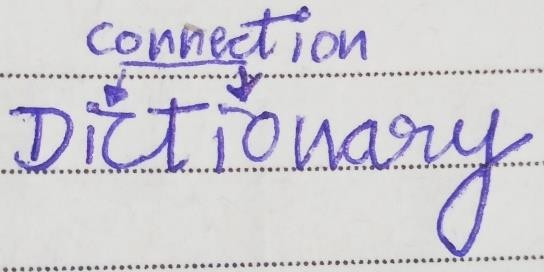 connection
Dictionary